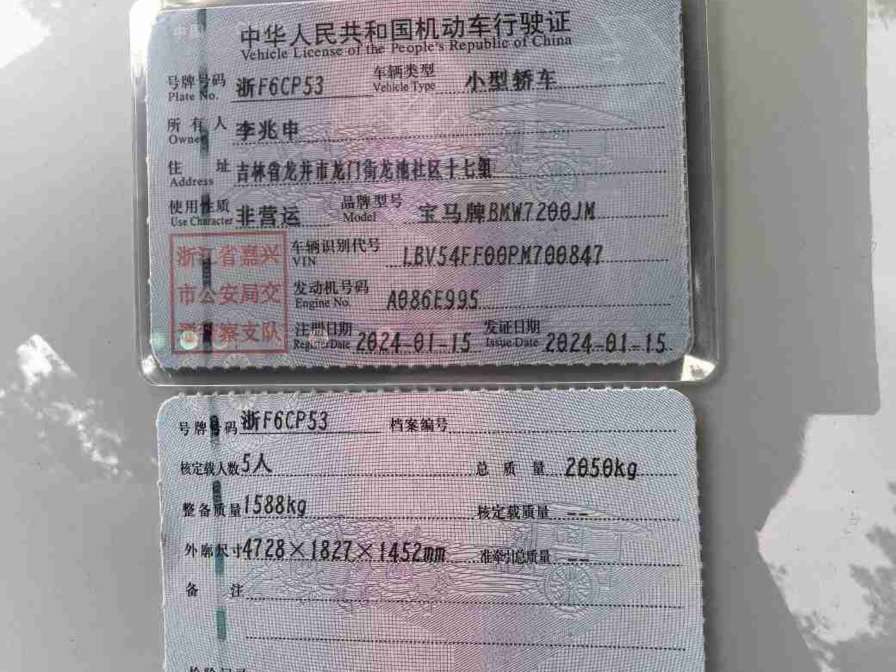 中华人民共和国机动车行驶证
Vehicle License of the People's Republic of China
号牌号码 浙F6CP53 车辆类型 小型轿车
Plate No. Vehicle Type
所有人 李兆申
Owner
住址 吉林省龙井市龙门街龙池社区十七组
Address
使用性质 非营运 品牌型号 宝马牌BMW7200JM
Use Character Model
浙江省嘉兴
市公安局交
通警察支队
车辆识别代号 LBV54FF00PM700847
VIN
发动机号码 A086E995
Engine No.
注册日期 2024-01-15 发证日期 2024-01-15
Register Date Issue Date
号牌号码 浙F6CP53 档案编号
核定载人数 5人 总质量 2050kg
整备质量 1588kg 核定载质量 --
外廓尺寸 4728×1827×1452mm 准牵引总质量 --
备注
检验记录